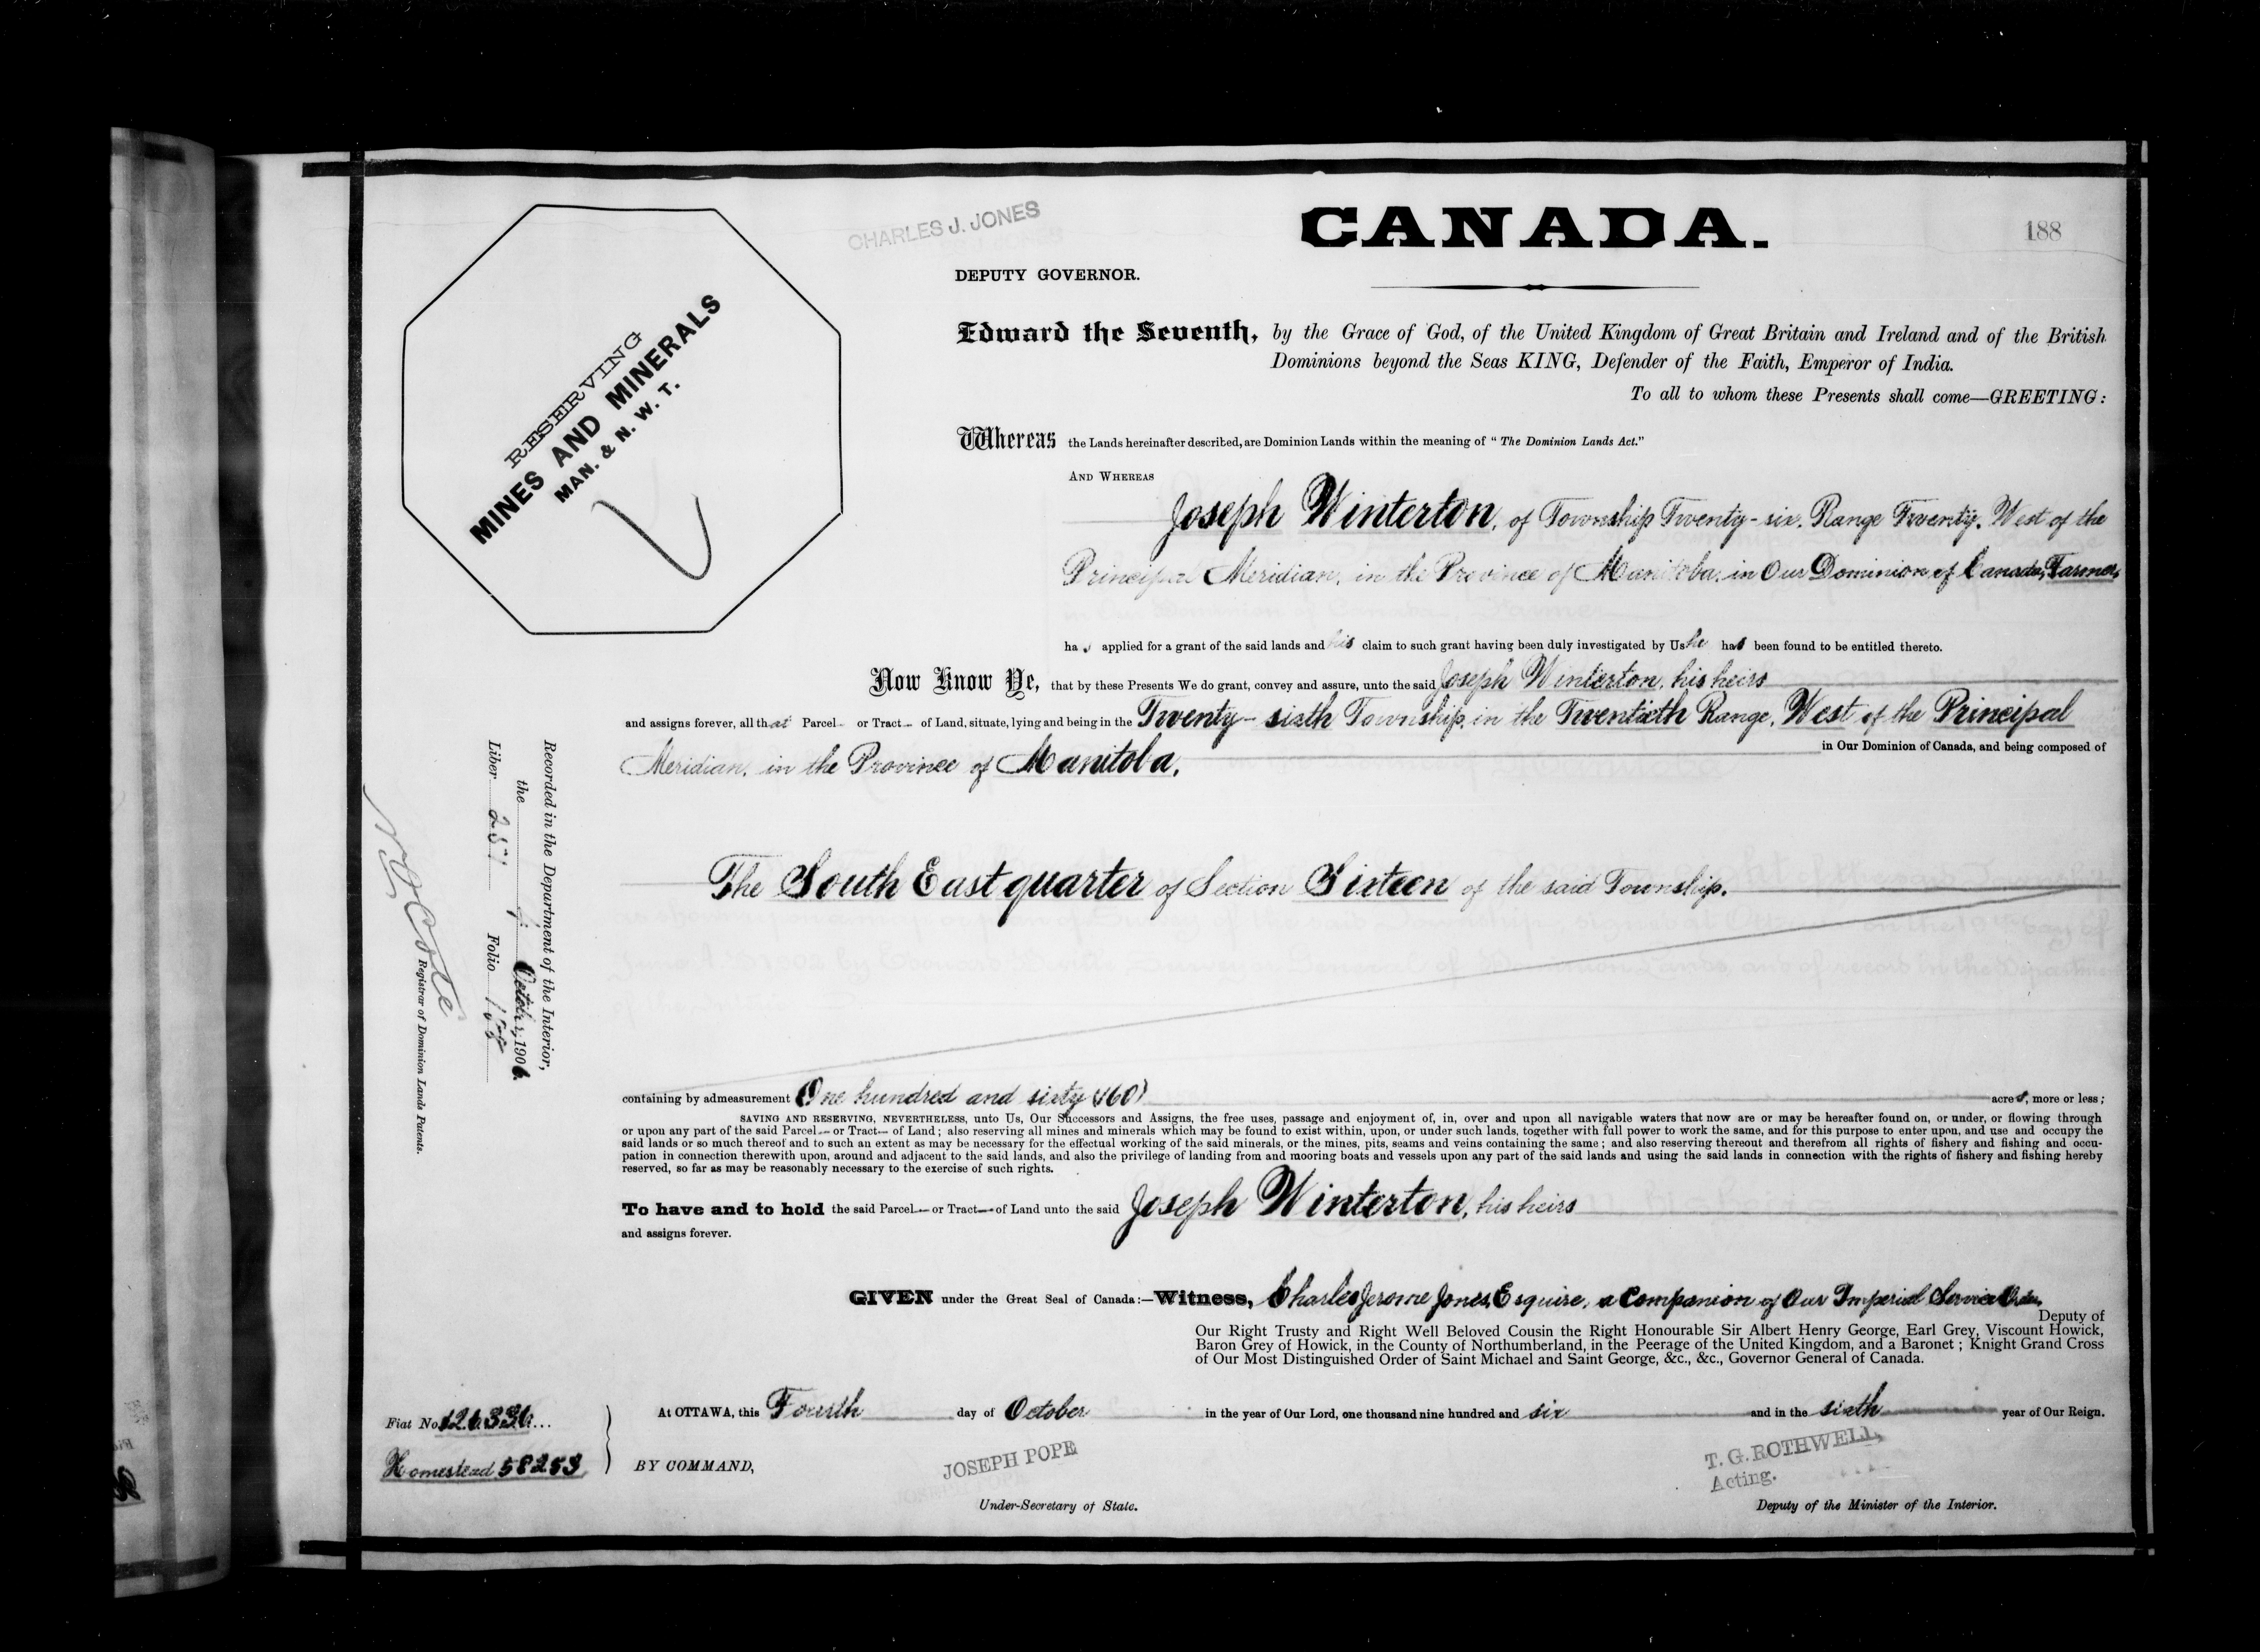 CHARLES J. JONES
CANADA.
188
DEPUTY GOVERNOR.
RESERVING
MINES AND MINERALS
MAN. & N. W. T.
Edward the Seventh, by the Grace of God, of the United Kingdom of Great Britain and Ireland and of the British
Dominions beyond the Seas KING, Defender of the Faith, Emperor of India.
To all to whom these Presents shall come—GREETING:
Whereas the Lands hereinafter described, are Dominion Lands within the meaning of "The Dominion Lands Act."
AND WHEREAS
Joseph Winterton, of Township Twenty-six, Range Twenty, West of the
Principal Meridian, in the Province of Manitoba, in Our Dominion of Canada, Farmer,
has applied for a grant of the said lands and his claim to such grant having been duly investigated by Us he has been found to be entitled thereto.
Now Know Ye, that by these Presents We do grant, convey and assure, unto the said Joseph Winterton, his heirs
and assigns forever, all that Parcel or Tract of Land, situate, lying and being in the Twenty-sixth Township, in the Twentieth Range, West of the Principal
Meridian, in the Province of Manitoba, in Our Dominion of Canada, and being composed of
The South East quarter of Section Sixteen of the said Township.
containing by admeasurement One hundred and sixty (160) acres, more or less;
SAVING AND RESERVING, NEVERTHELESS, unto Us, Our Successors and Assigns, the free uses, passage and enjoyment of, in, over and upon all navigable waters that now are or may be hereafter found on, or under, or flowing through
or upon any part of the said Parcel or Tract of Land; also reserving all mines and minerals which may be found to exist within, upon, or under such lands, together with full power to work the same, and for this purpose to enter upon, and use and occupy the
said lands or so much thereof and to such an extent as may be necessary for the effectual working of the said minerals, or the mines, pits, seams and veins containing the same; and also reserving thereout and therefrom all rights of fishery and fishing and occu-
pation in connection therewith upon, around and adjacent to the said lands, and also the privilege of landing from and mooring boats and vessels upon any part of the said lands and using the said lands in connection with the rights of fishery and fishing hereby
reserved, so far as may be reasonably necessary to the exercise of such rights.
To have and to hold the said Parcel or Tract of Land unto the said Joseph Winterton, his heirs
and assigns forever.
GIVEN under the Great Seal of Canada:—Witness, Charles Jerome Jones, Esquire, a Companion of Our Imperial Service Order,
Deputy of
Our Right Trusty and Right Well Beloved Cousin the Right Honourable Sir Albert Henry George, Earl Grey, Viscount Howick,
Baron Grey of Howick, in the County of Northumberland, in the Peerage of the United Kingdom, and a Baronet; Knight Grand Cross
of Our Most Distinguished Order of Saint Michael and Saint George, &c., &c., Governor General of Canada.
At OTTAWA, this Fourth day of October in the year of Our Lord, one thousand nine hundred and six and in the sixth year of Our Reign.
BY COMMAND,
JOSEPH POPE
Under-Secretary of State.
T. G. ROTHWELL,
Acting.
Deputy of the Minister of the Interior.
Fiat No. 126336
Homestead 58253
Recorded in the Department of the Interior,
the October, 1906.
Liber 257 Folio 188
N. O. Coté
Registrar of Dominion Lands Patents.